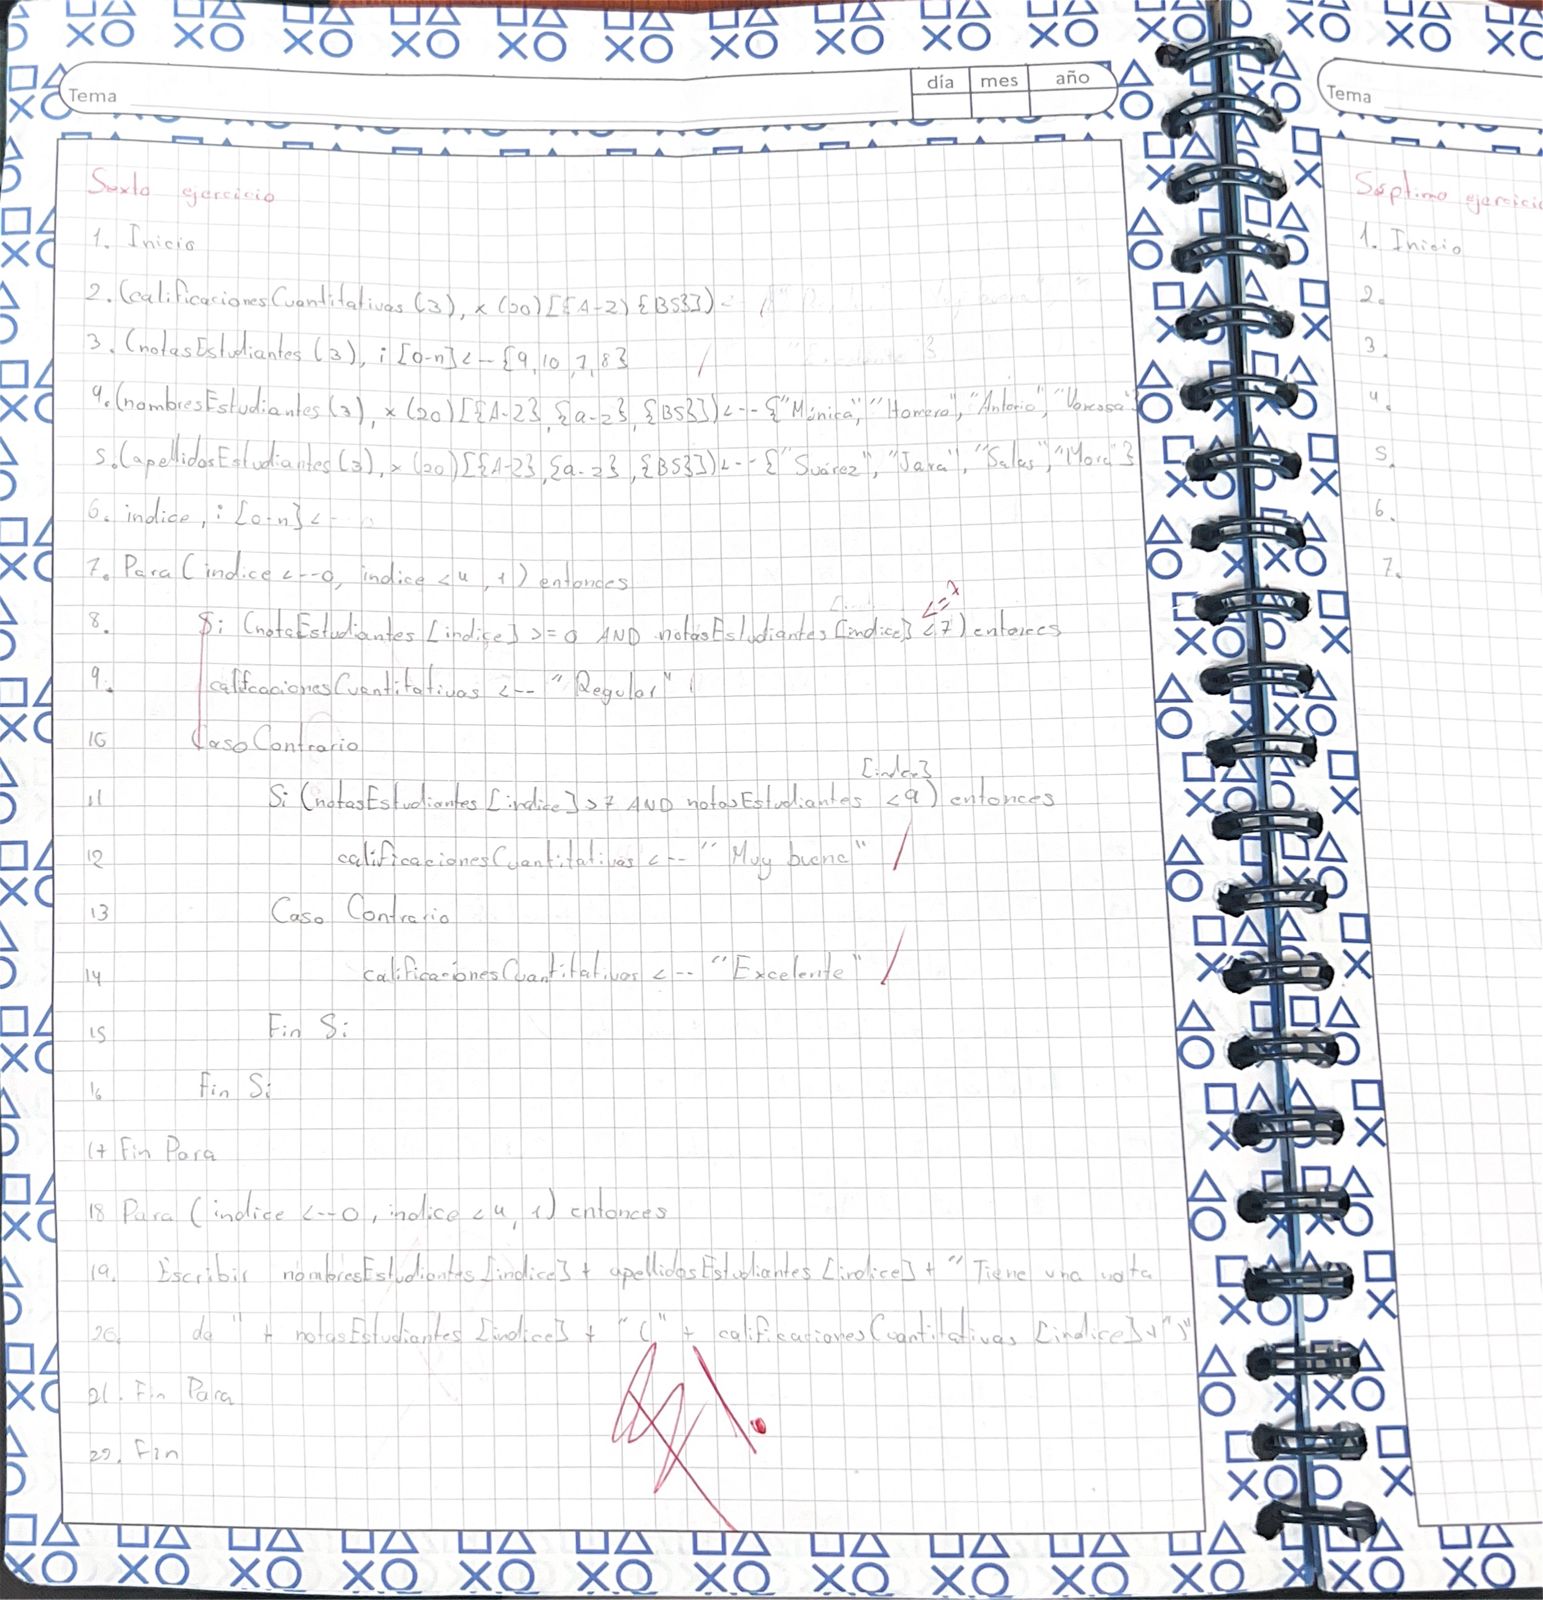 Tema
día mes año
Sexto ejercicio
1. Inicio
2. (calificacionesCuantitativas (3), x (20) [{A-Z} {BS}]) <--
3. (notasEstudiantes (3), i [0-n] <-- {9, 10, 7, 8}
4. (nombresEstudiantes (3), x (20) [{A-Z}, {a-z}, {BS}]) <-- {"Mónica", "Homero", "Antonio", "Vanessa"
5. (apellidosEstudiantes (3), x (20) [{A-Z}, {a-z}, {BS}]) <-- {"Suárez", "Jara", "Salas", "Mora"}
6. indice, i [0-n] <--
7. Para (indice <--0, indice <4, 1) entonces
<= x
8. Si (notaEstudiantes [indice] >= 0 AND notasEstudiantes [indice] <7) entonces
9. calificacionesCuantitativas <-- "Regular"
10 Caso Contrario
[index]
11 Si (notasEstudiantes [indice] >7 AND notasEstudiantes <9) entonces
12 calificacionesCuantitativas <-- "Muy bueno"
13 Caso Contrario
14 calificacionesCuantitativas <-- "Excelente"
15 Fin Si
16 Fin Si
17 Fin Para
18 Para (indice <--0, indice <4, 1) entonces
19. Escribir nombresEstudiantes [indice] + apellidosEstudiantes [indice] + "Tiene una nota
20. de " + notasEstudiantes [indice] + "(" + calificacionesCuantitativas [indice] + ")"
21. Fin Para
22. Fin
Tema
Séptimo ejercicio
1. Inicio
2.
3.
4.
5.
6.
7.